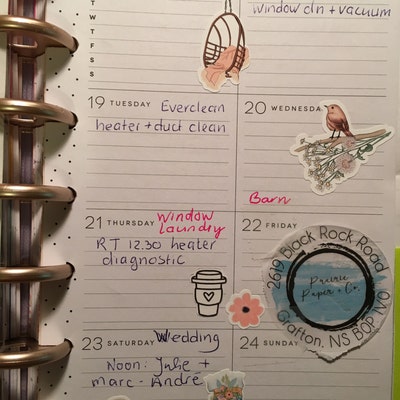 window cln + vacuum
T
W
T
F
S
S
19 TUESDAY Everclean
heater + duct clean
20 WEDNESDA
Barn
21 THURSDAY Window
Laundry
RT 12.30 heater
diagnostic
22 FRIDAY
2619 Black Rock Road
Prairie
Paper + Co.
Grafton, NS B0P 1V0
23 SATURDAY Wedding
Noon: Julie +
marc-André
24 SUNDAY